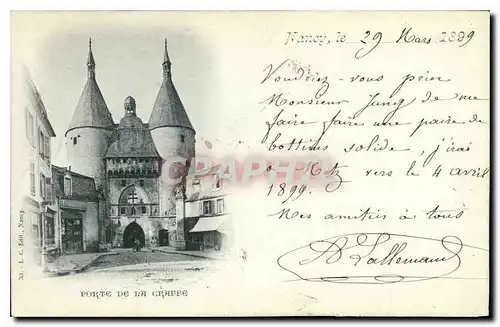 Nancy, le 29 Mars 1899
Voudriez-vous prier
Monsieur Jung de me
faire faire une paire de
bottines solide, j'irai
a Metz vers le 4 avril
1899.
Mes amitiés à tous
A Lallemand
53. - I. C. Edit., Nancy.
PORTE DE LA CRAFFE
CPARAMA